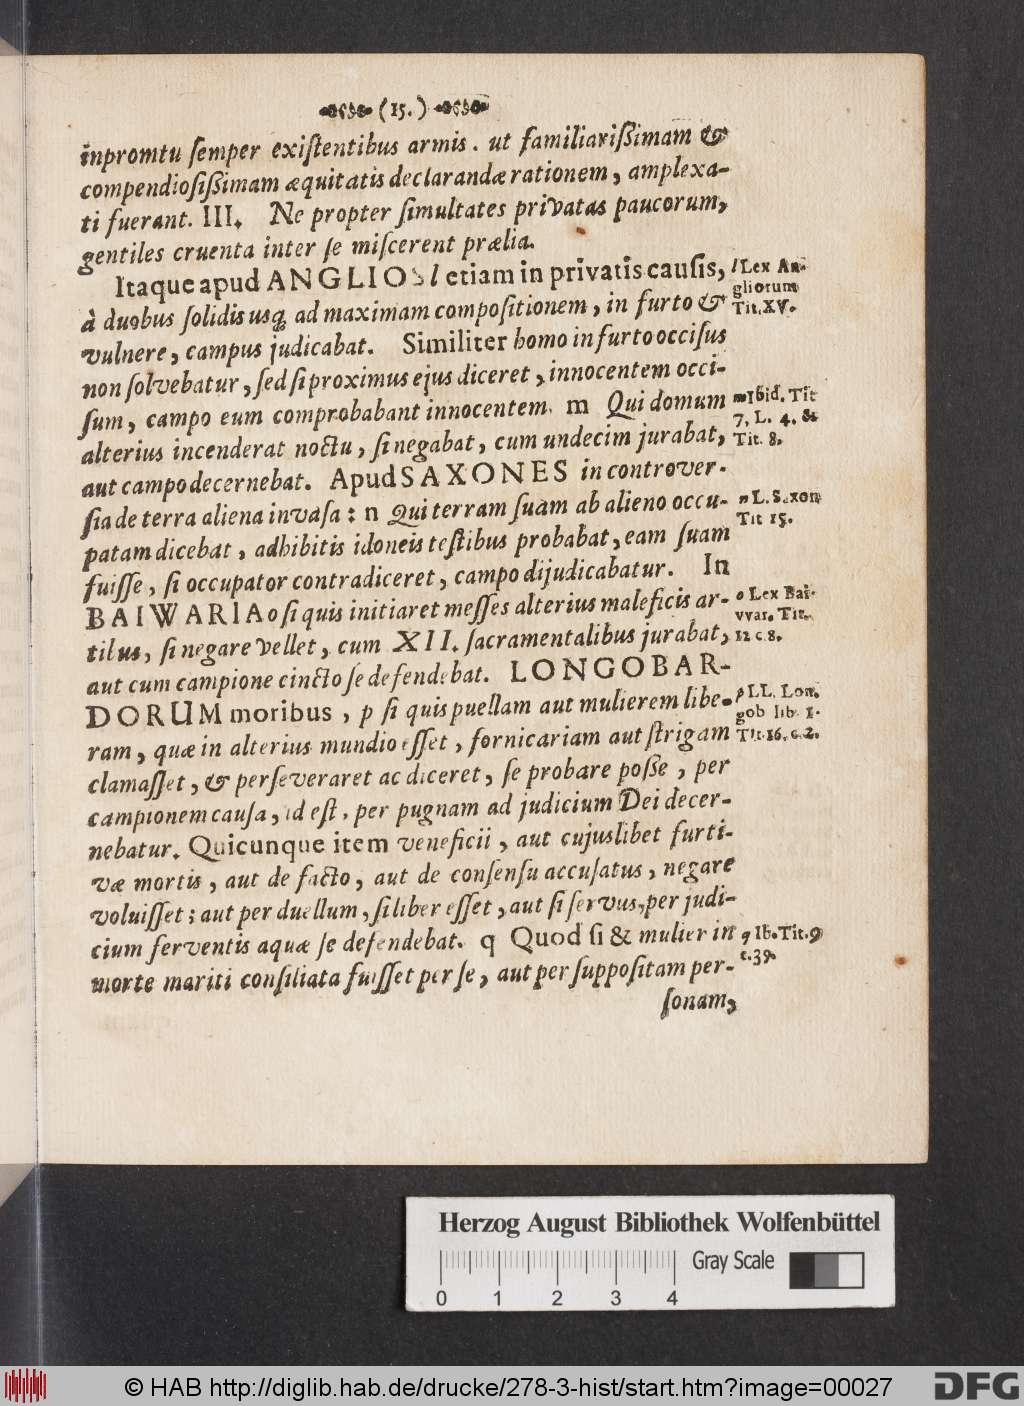 (15.)
inpromtu ſemper exiſtentibus armis. ut familiariſſimam &
compendioſiſſimam æquitatis declarandæ rationem, amplexa-
ti fuerant. III. Ne propter ſimultates privatas paucorum,
gentiles cruenta inter ſe miſcerent prælia.
Itaque apud ANGLIOS l etiam in privatis cauſis,
à duobus ſolidis usq; ad maximam compoſitionem, in furto &
vulnere, campus judicabat. Similiter homo in furto occiſus
non ſolvebatur, ſed ſi proximus ejus diceret, innocentem occi-
ſum, campo eum comprobabant innocentem. m Qui domum
alterius incenderat noctu, ſi negabat, cum undecim jurabat,
aut campo decernebat. Apud SAXONES in controver-
ſia de terra aliena invaſa: n Qui terram ſuam ab alieno occu-
patam dicebat, adhibitis idoneis teſtibus probabat, eam ſuam
fuiſſe, ſi occupator contradiceret, campo dijudicabatur. In
BAIWARIA o ſi quis initiaret meſſes alterius maleficis ar-
tibus, ſi negare vellet, cum XII. ſacramentalibus jurabat,
aut cum campione cincto ſe defendebat. LONGOBAR-
DORUM moribus, p ſi quis puellam aut mulierem libe-
ram, quæ in alterius mundio eſſet, fornicariam aut ſtrigam
clamaſſet, & perſeveraret ac diceret, ſe probare poſſe, per
campionem cauſa, id eſt, per pugnam ad judicium Dei decer-
nebatur. Quicunque item veneficii, aut cujuslibet furti-
væ mortis, aut de facto, aut de conſenſu accuſatus, negare
voluiſſet; aut per duellum, ſi liber eſſet, aut ſi ſervus, per judi-
cium ferventis aquæ ſe defendebat. q Quod ſi & mulier in
morte mariti conſiliata fuiſſet per ſe, aut per ſuppoſitam per-
ſonam,
l Lex An-
gliorum
Tit. XV.
m Ibid. Tit
7. L. 4. &
Tit. 8.
n L. Saxon
Tit 15.
o Lex Bai-
vvar. Tit.
12 c 8.
p LL. Lon.
gob lib. 1.
Tit. 16. c. 2.
q Ib. Tit. 9
c. 39.
Herzog August Bibliothek Wolfenbüttel
Gray Scale
0 1 2 3 4
© HAB http://diglib.hab.de/drucke/278-3-hist/start.htm?image=00027
DFG